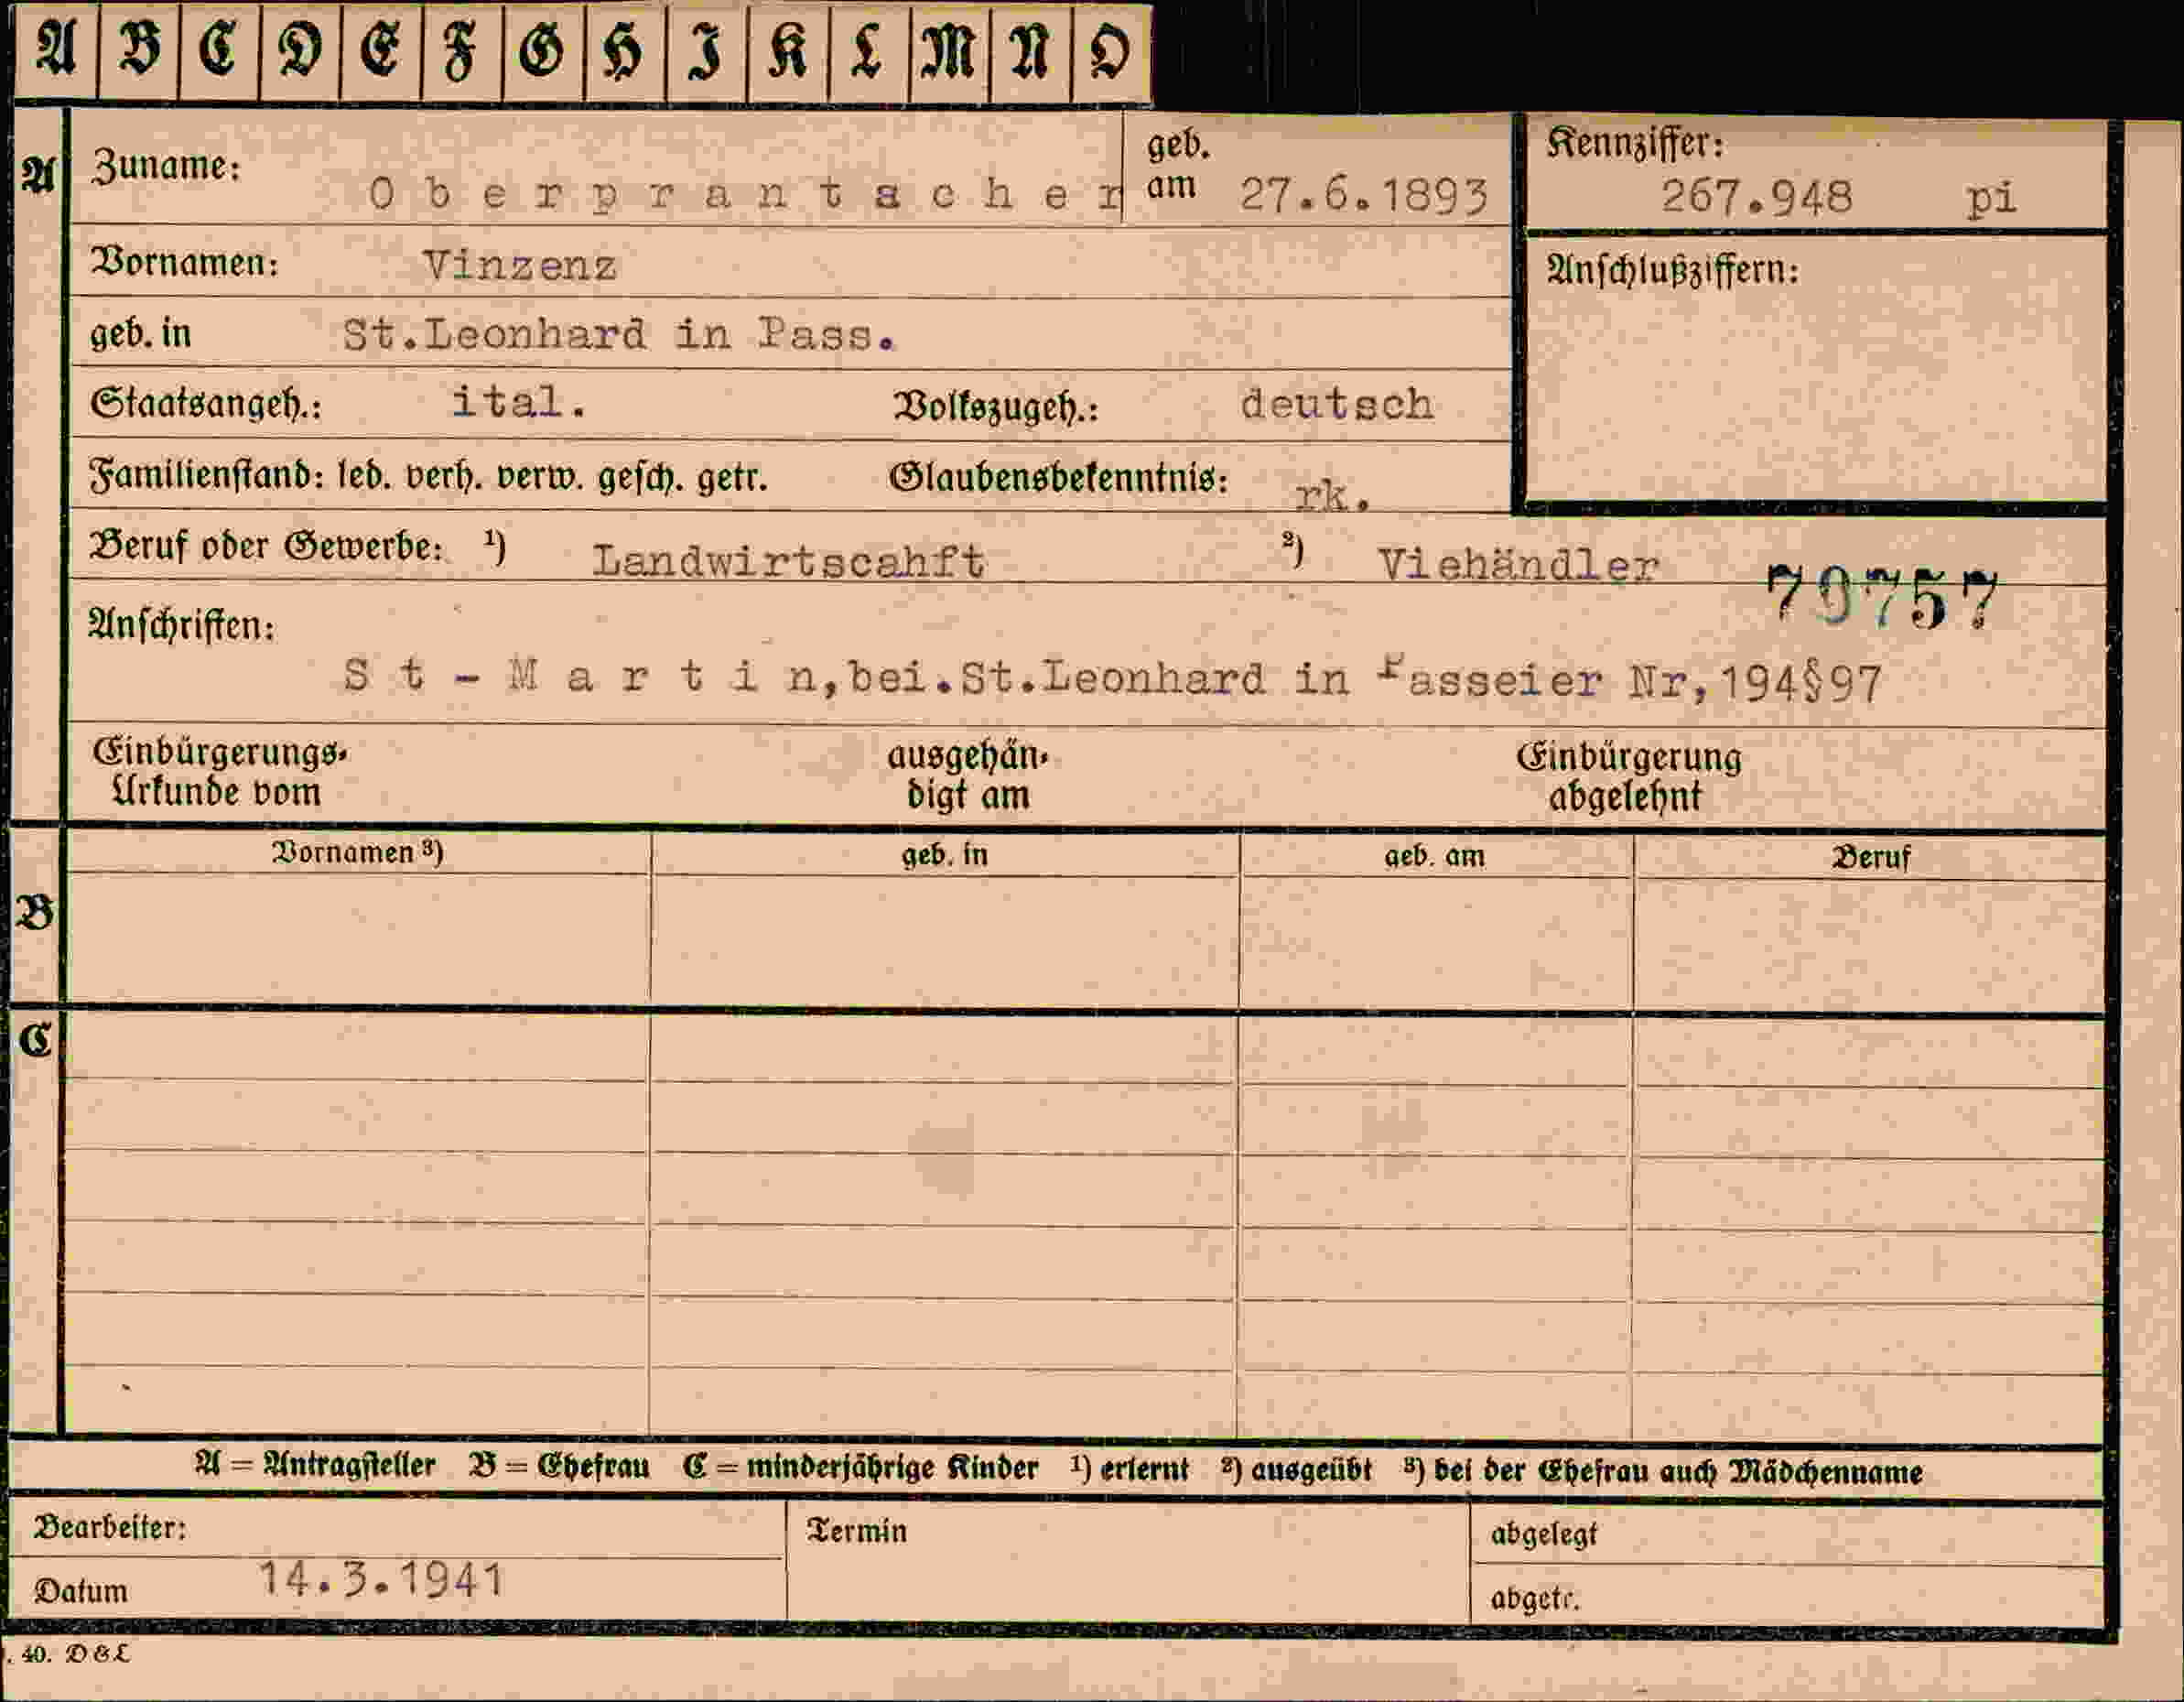 A B C D E F G H I K L M N O
A Zuname: Oberprantacher geb. am 27.6.1893 Kennziffer: 267.948 pi
Vornamen: Vinzenz Anschlußziffern:
geb. in St.Leonhard in Pass.
Staatsangeh.: ital. Volkszugeh.: deutsch
Familienstand: led. verh. verw. gesch. getr. Glaubensbekenntnis: rk.
Beruf oder Gewerbe: ¹) Landwirtscahft ²) Viehändler
79757
Anschriften:
St-Martin,bei.St.Leonhard in Passeier Nr,194§97
Einbürgerungs- ausgehän- Einbürgerung
Urkunde vom digt am abgelehnt
Vornamen ³) geb. in geb. am Beruf
B
C
A = Antragsteller B = Ehefrau C = minderjährige Kinder ¹) erlernt ²) ausgeübt ³) bei der Ehefrau auch Mädchenname
Bearbeiter: Termin abgelegt
Datum 14.3.1941 abgetr.
. 40. D & L